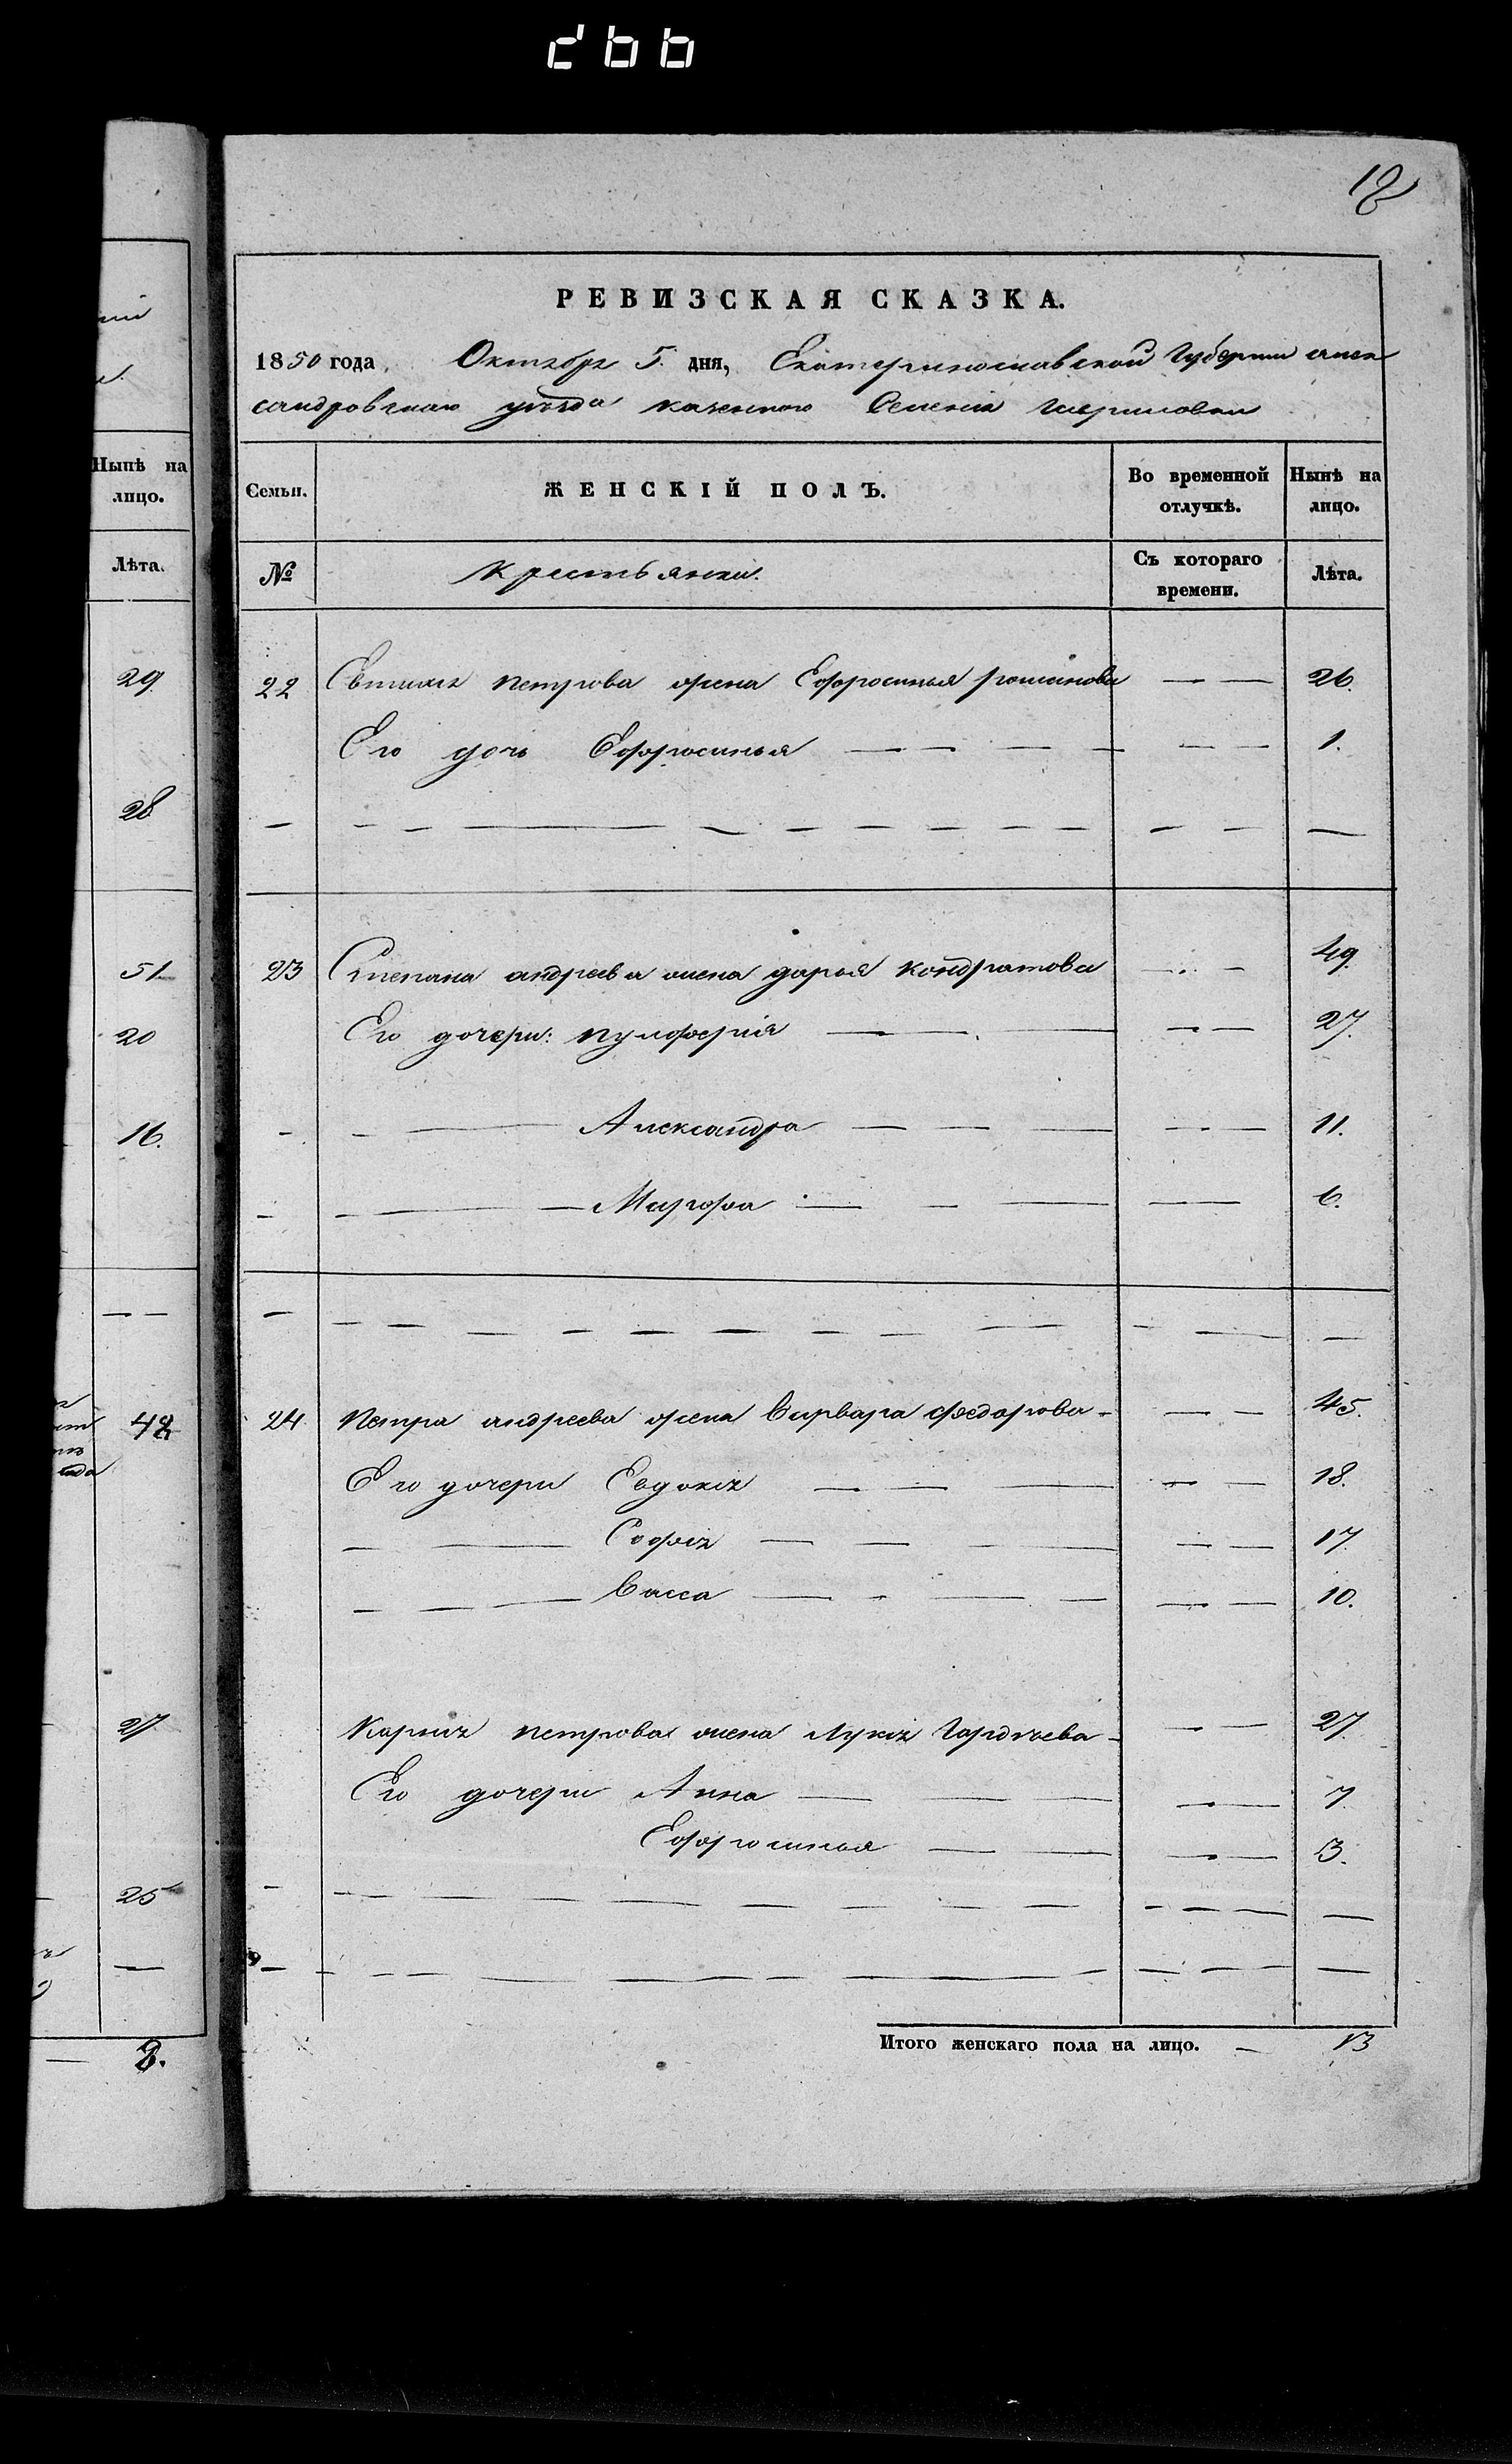 266
18
РЕВИЗСКАЯ СКАЗКА.
1850 года Октября 5. дня, Екатеринославской Губернии Алек
сандровскаго уезда казенного Селения
Нынѣ на лицо.
Лѣта.
29
28
51
20
16.
48
27
25
Семьи. ЖЕНСКІЙ ПОЛЪ. Во временной отлучкѣ. Нынѣ на лицо.
№ Крестьянки. Съ котораго времени. Лѣта.
22 Евтихия петрова жена Ефросинья романова — — 26.
Его дочь Ефросинья — — — — — — 1.
23 Степана андреева жена дарья кондратова — — 49.
Его дочери: пулферія — — — — — 27.
— — — Александра — — — — — — 11.
— — — Марфа — — — — — 6.
24 Петра андреева жена Варвара федорова — — — 45.
Его дочери Евдокія — — — — — 18.
— — Софія — — — — — 17.
— — — Васса — — — — — — 10.
Карпа петрова жена Лукія Гордѣева — — — 27.
Его дочери Анна — — — — — 7.
Ефросинья — — — — 3.
Итого женскаго пола на лицо. — 13